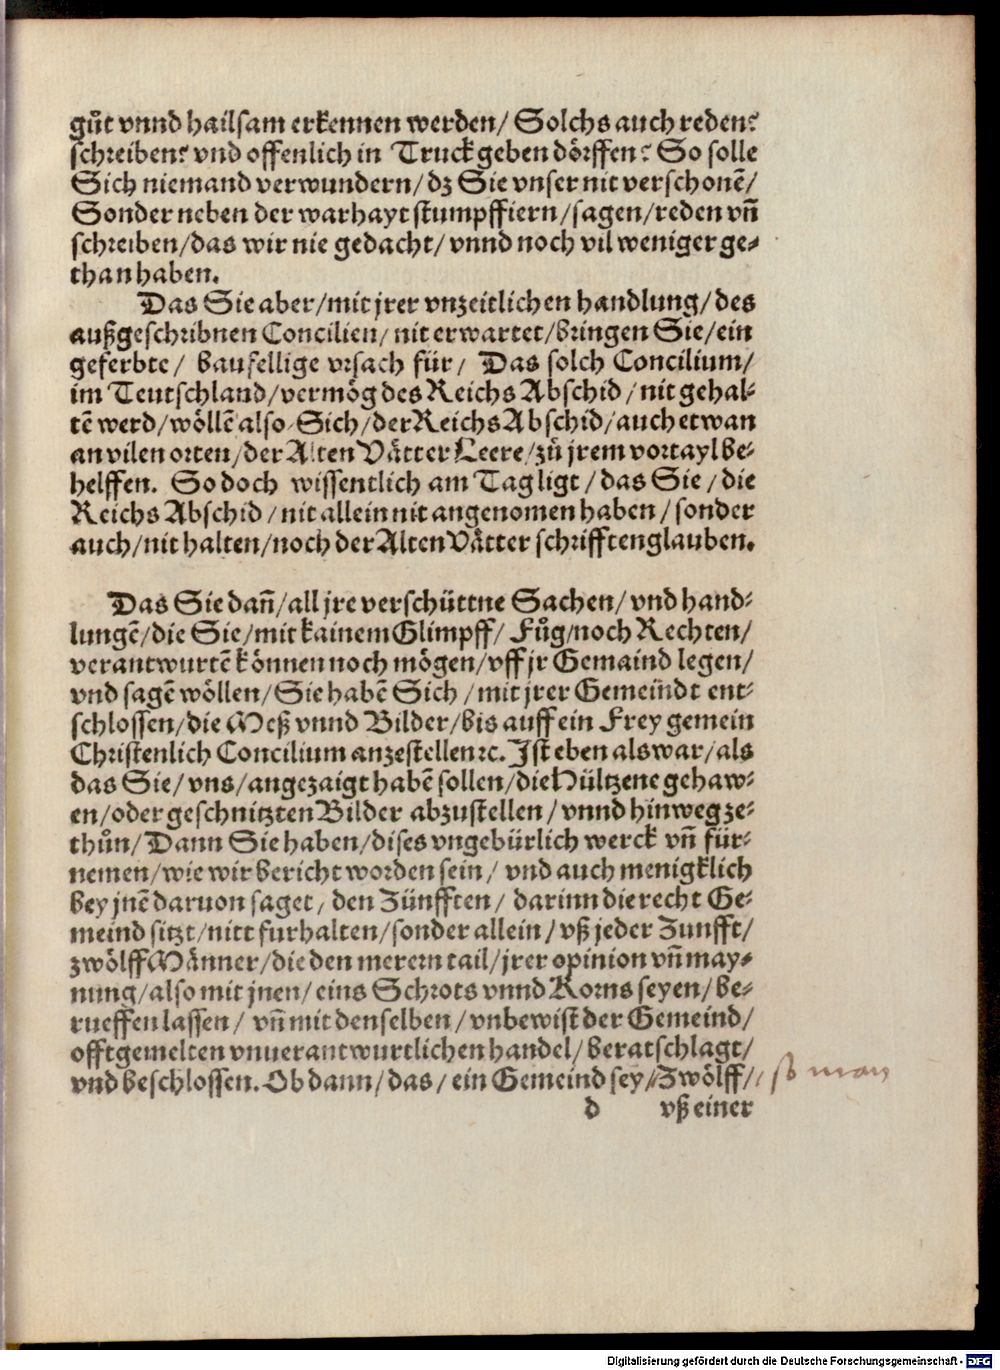 gůt vnnd hailsam erkennen werden/ Solchs auch reden?
schreiben? vnd offenlich in Truck geben dörffen? So solle
Sich niemand verwundern/ dz Sie vnser nit verschonẽ/
Sonder neben der warhayt stumpffiern/ sagen/ reden vñ
schreiben/ das wir nie gedacht/ vnnd noch vil weniger ge-
than haben.
Das Sie aber/ mit jrer vnzeitlichen handlung/ des
außgeschribnen Concilien/ nit erwartet/ bringen Sie/ ein
geferbte/ baufellige vrsach für/ Das solch Concilium/
im Teutschland/ vermög des Reichs Abschid/ nit gehal-
tẽ werd/ wöllẽ also Sich/ der Reichs Abschid/ auch etwan
an vilen orten/ der Alten Vätter Leere/ zů jrem vortayl be-
helffen. So doch wissentlich am Tag ligt/ das Sie/ die
Reichs Abschid/ nit allein nit angenomen haben/ sonder
auch/ nit halten/ noch der Alten Vätter schrifften glauben.
Das Sie dañ/ all jre verschüttne Sachen/ vnd hand-
lungẽ/ die Sie/ mit kainem Glimpff/ Fůg/ noch Rechten/
verantwurtẽ können noch mögen/ vff jr Gemaind legen/
vnd sagẽ wöllen/ Sie habẽ Sich/ mit jrer Gemeindt ent-
schlossen/ die Meß vnnd Bilder/ bis auff ein Frey gemein
Christenlich Concilium anzestellen ꝛc. Ist eben als war/ als
das Sie/ vns/ angezaigt habẽ sollen/ die Hültzene gehaw-
en/ oder geschnitzten Bilder abzustellen/ vnnd hinweg ze-
thůn/ Dann Sie haben/ dises vngebürlich werck vñ für-
nemen/ wie wir bericht worden sein/ vnd auch menigklich
bey jnẽ daruon saget/ den Zünfften/ darinn die recht Ge-
meind sitzt/ nitt furhalten/ sonder allein/ vß jeder Zunfft/
zwölff Männer/ die den merern tail/ jrer opinion vñ may-
nung/ also mit jnen/ eins Schrots vnnd Korns seyen/ be-
rueffen lassen/ vñ mit denselben/ vnbewist der Gemeind/
offtgemelten vnuerantwurtlichen handel/ beratschlagt/
vnd beschlossen. Ob dann/ das/ ein Gemeind sey/ Zwölff/ so man
d vß einer
Digitalisierung gefördert durch die Deutsche Forschungsgemeinschaft - DFG